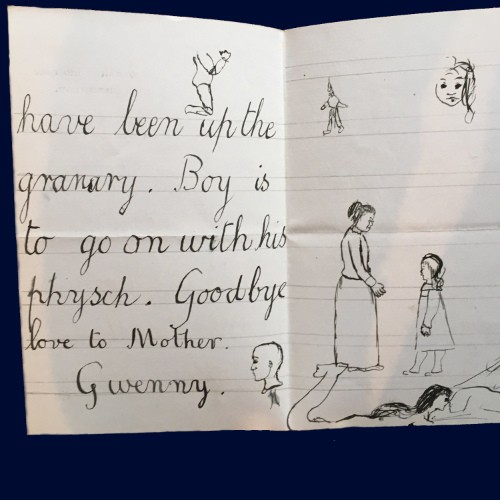 have been up the
granary. Boy is
to go on with his
physch. Goodbye
love to Mother.
Gwenny.